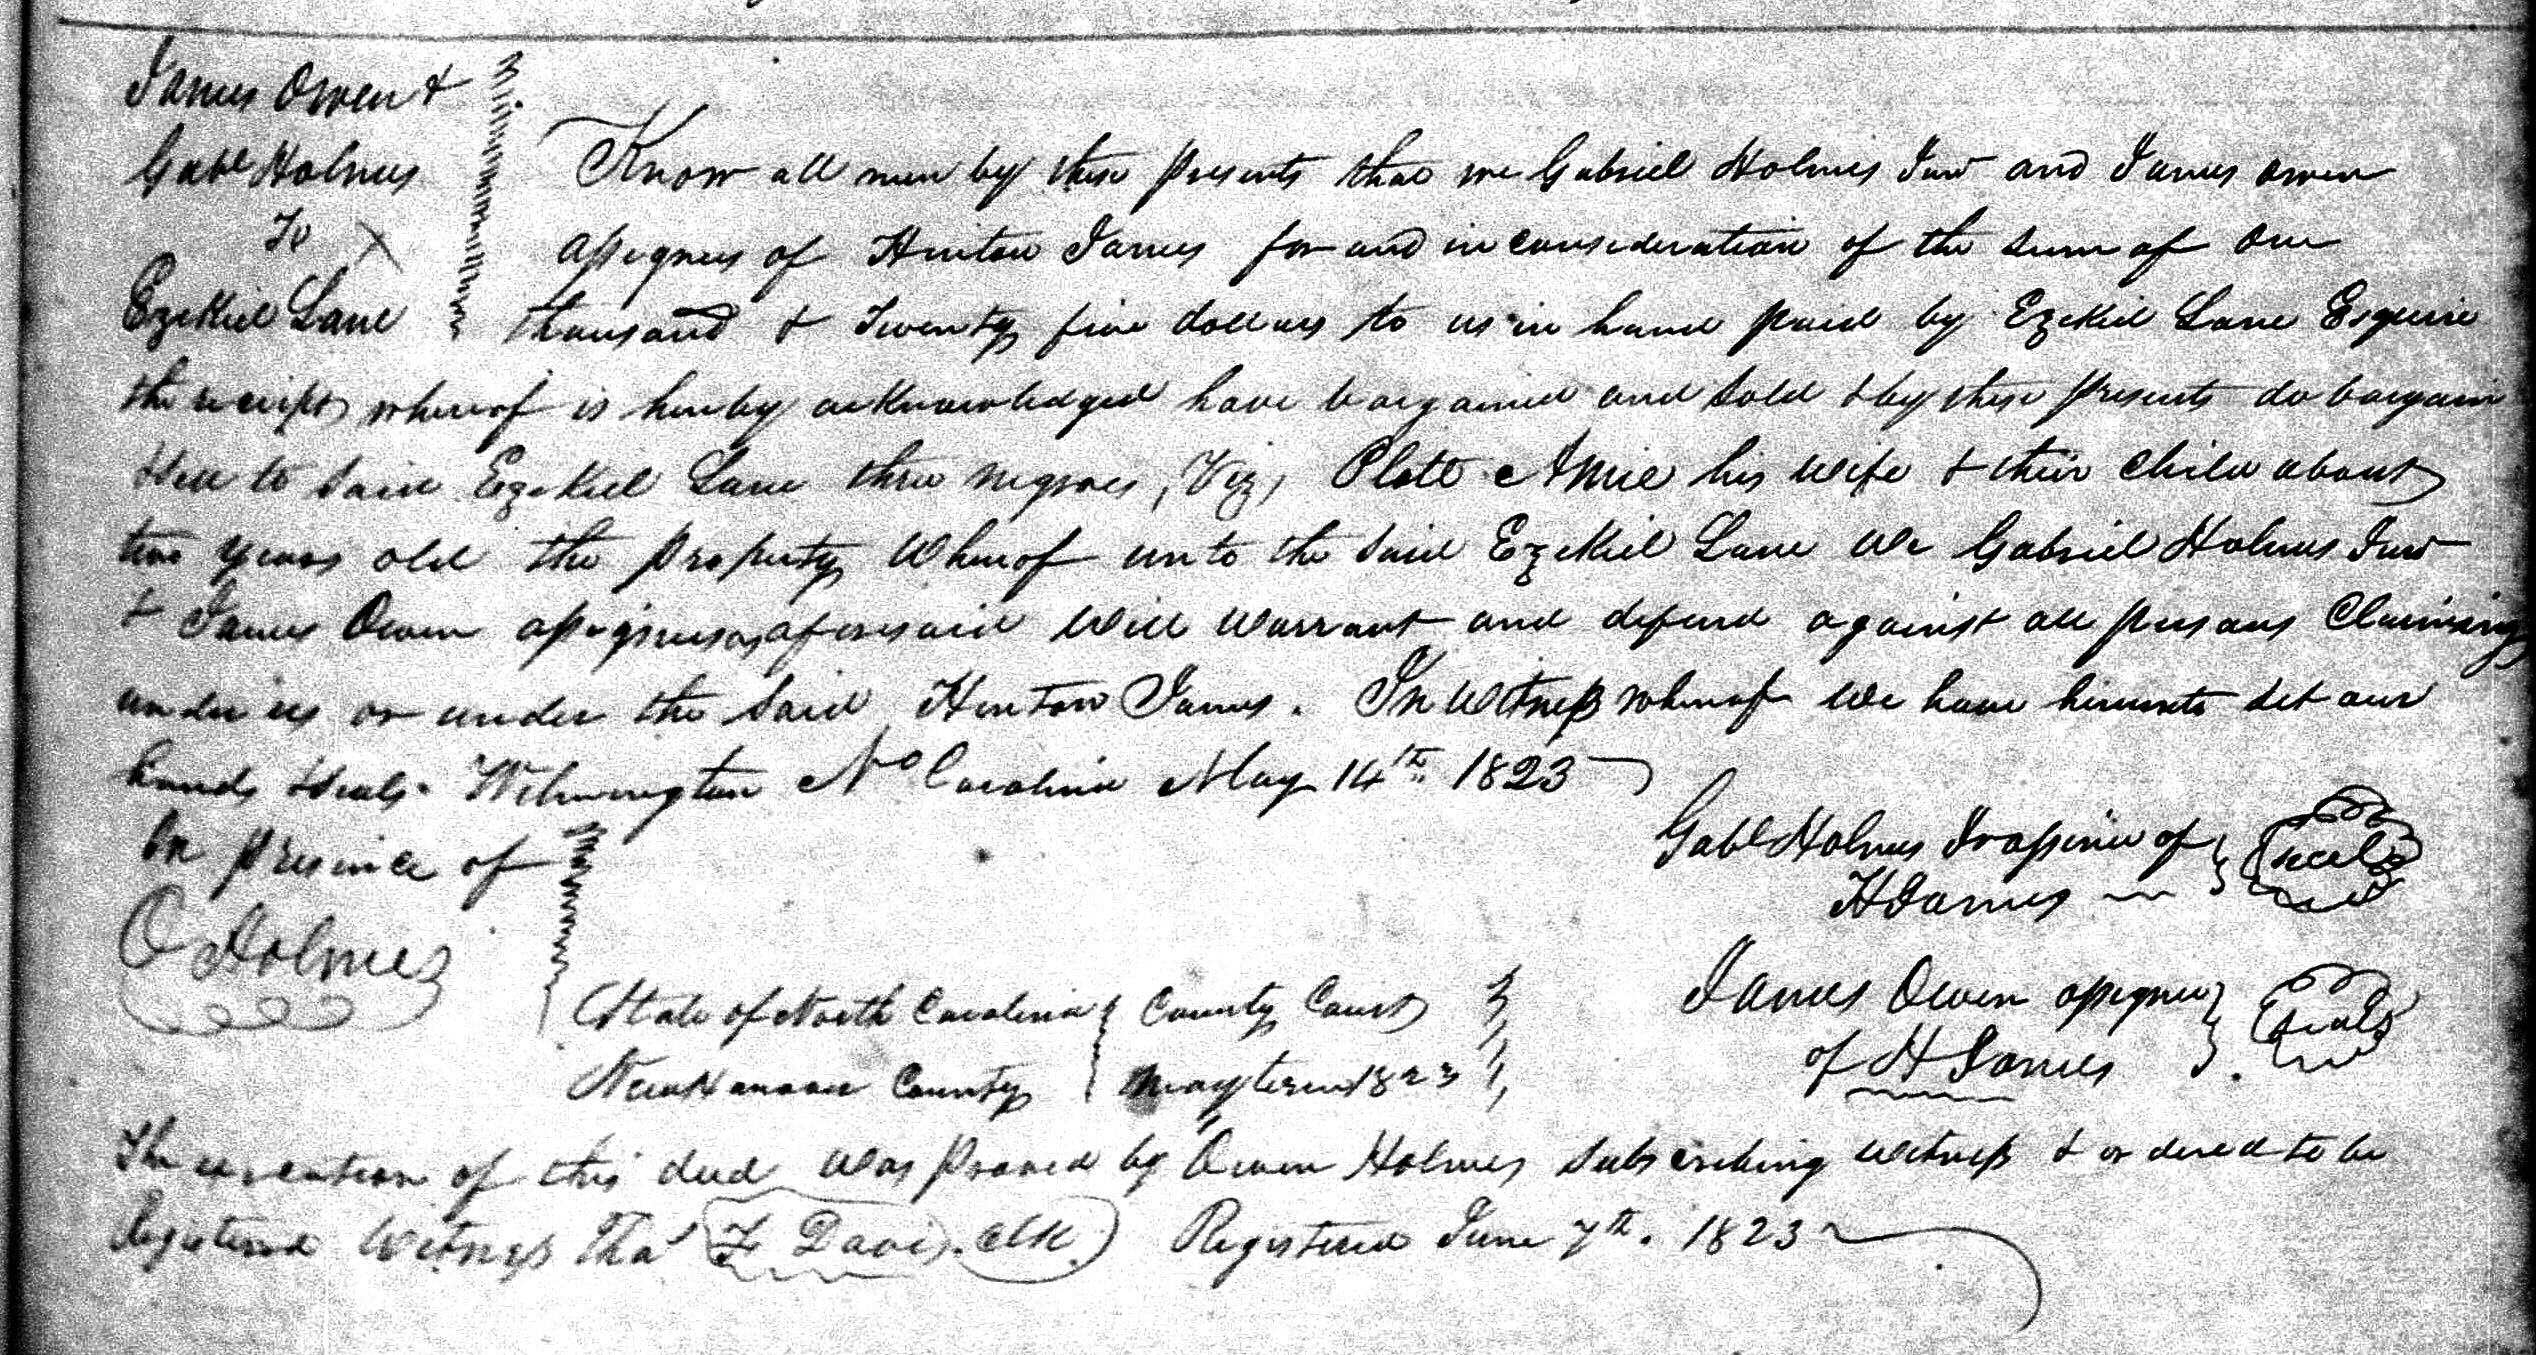 James Owen &
Gabl Holmes
To
Ezekiel Lane
Know all men by these presents that we Gabriel Holmes Junr and James Owen
assignees of Hinton James for and in consideration of the sum of one
thousand & Twenty five dollars to us in hand paid by Ezekiel Lane Esquire
the receipt whereof is hereby acknowledged have bargained and sold & by these presents do bargain
& sell to said Ezekiel Lane three negroes, Viz, Plato & Amie his wife & their child about
two years old the property whereof unto the said Ezekiel Lane We Gabriel Holmes Junr
& James Owen assignees as aforesaid will warrant and defend against all persons Claiming
under us or under the said Hinton James. In witness whereof We have hereunto set our
hands & seals. Wilmington No Carolina May 14th 1823
In presence of
O Holmes
Gabl Holmes Jr assinee of
H James
seal
James Owen assignee
of H James
seal
State of North Carolina County Court
New Hanover County May term 1823
The execution of this deed was proved by Owen Holmes subscribing witness & ordered to be
Registered Witness Tho F Davis. Clk. Registered June 7th. 1823